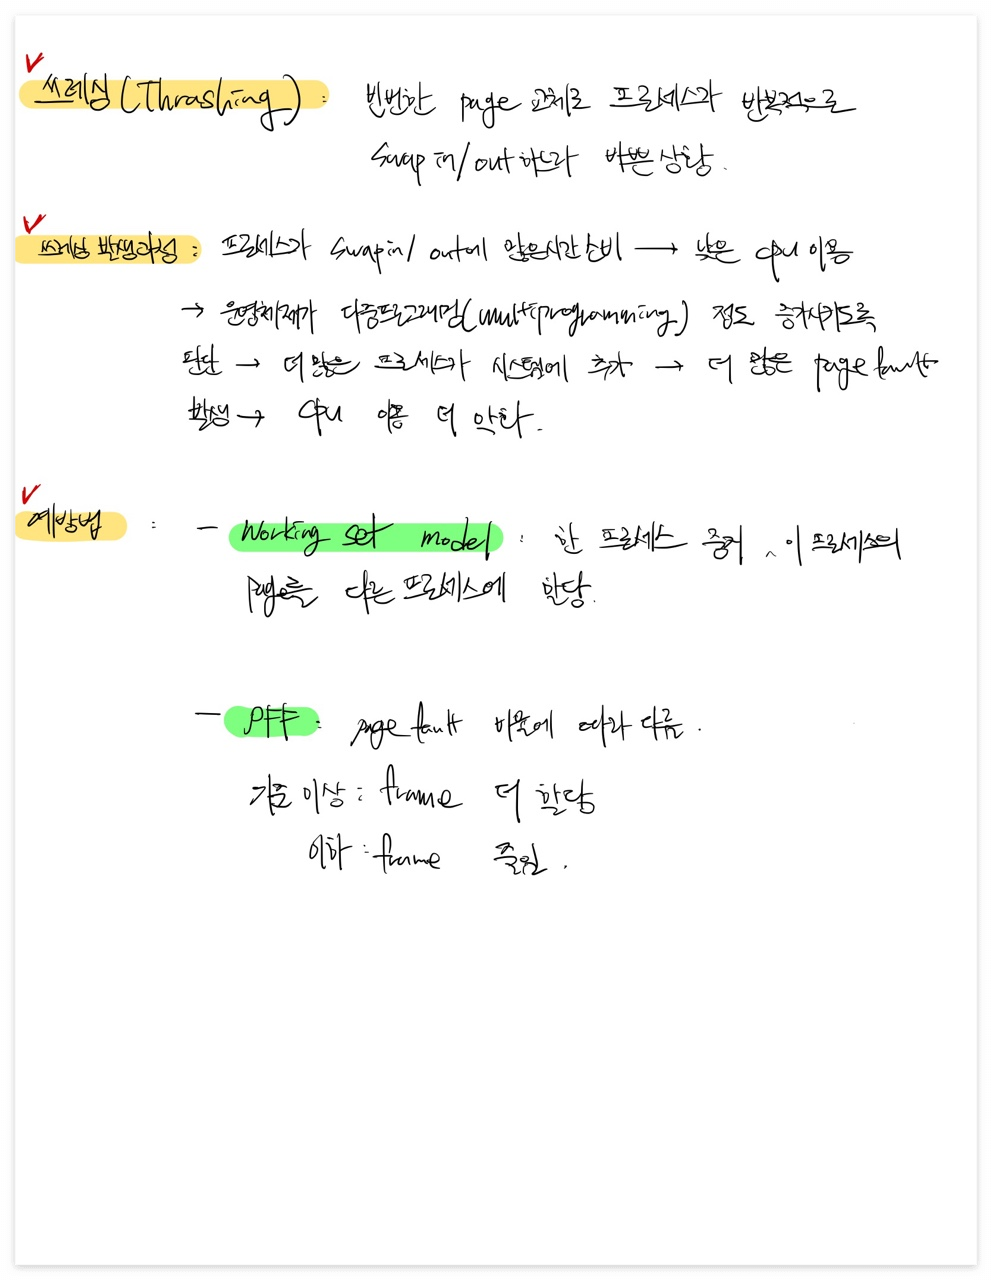 쓰레싱(Thrashing) : 빈번한 page 교체로 프로세스가 반복적으로
swap in/out 하느라 바쁜 상황.
쓰레싱 발생과정 : 프로세스가 swap in/ out에 많은시간 소비 → 낮은 CPU 이용
→ 운영체제가 다중프로그래밍(multiprogramming) 정도 증가시키도록
판단 → 더 많은 프로세스가 시스템에 추가 → 더 많은 page fault
발생 → CPU 이용 더 악화.
예방법 : - Working set model : 한 프로세스 중지 ^ 이 프로세스의
page를 다른 프로세스에 할당.
- PFF : page fault 비율에 따라 다름.
기준 이상 : frame 더 할당
이하 : frame 줄임.